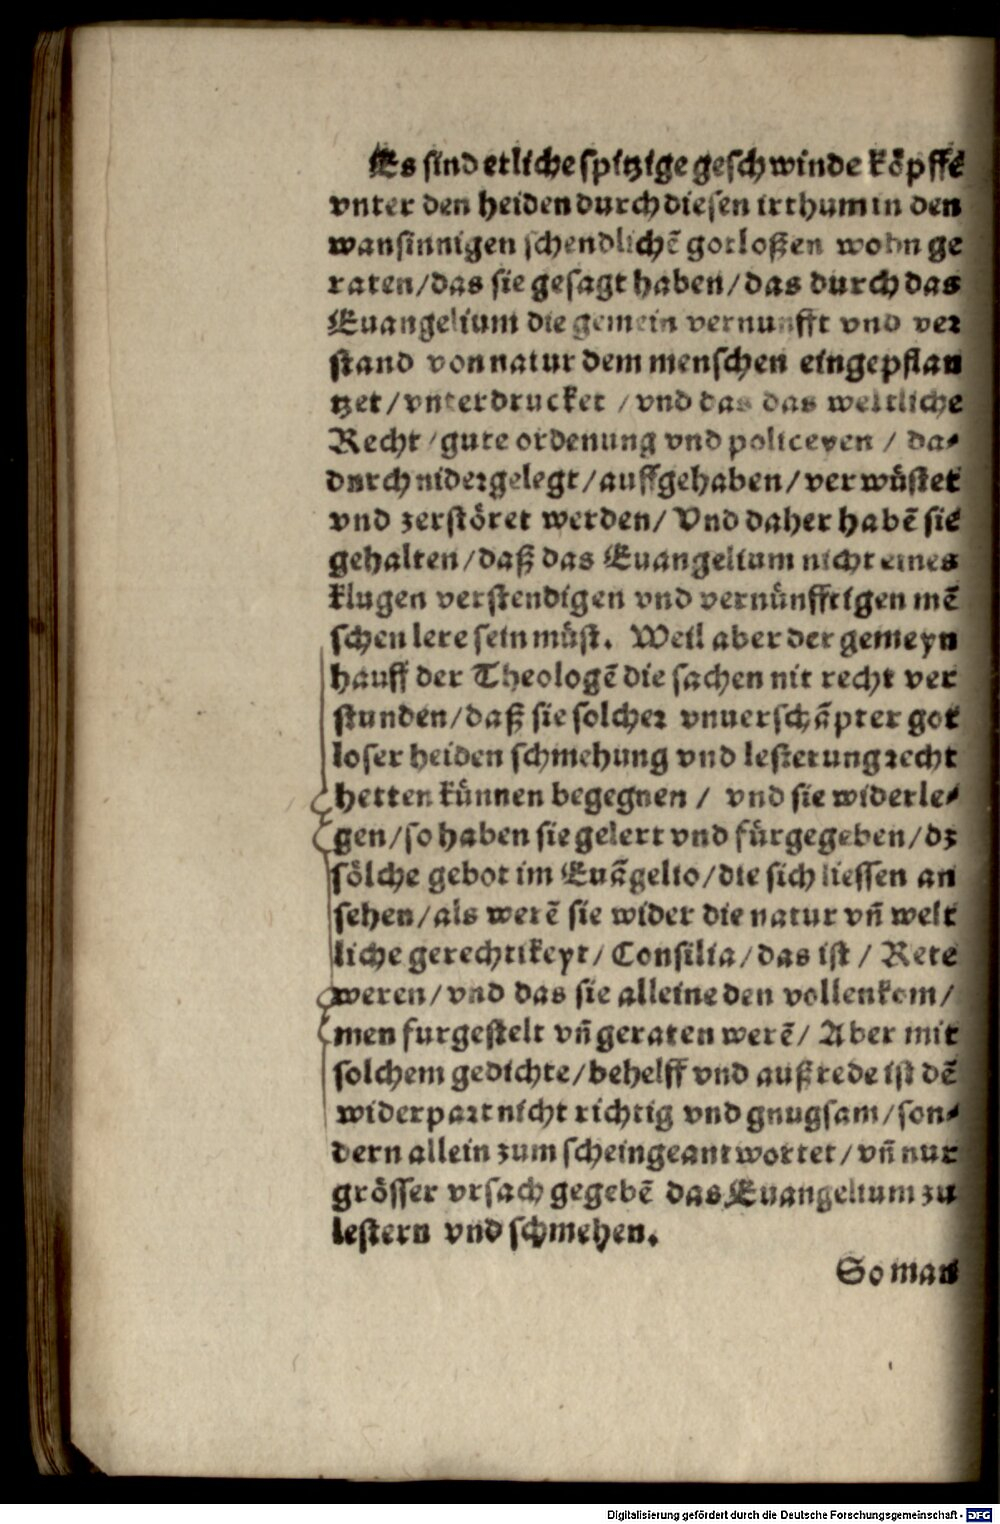 Es sind etliche spitzige geschwinde köpffe
vnter den heiden durch diesen irthum in den
wansinnigen schendlichē gotloßen wohn ge
raten/das sie gesagt haben/das durch das
Euangelium die gemein vernunfft vnd ver
stand von natur dem menschen eingepflan
tzet/vnterdrucket /vnd das das weltliche
Recht/gute ordenung vnd policeyen / da⸗
durch nidergelegt/auffgehaben/verwüstet
vnd zerstöret werden/ Vnd daher habē sie
gehalten/daß das Euangelium nicht eines
klugen verstendigen vnd vernünfftigen mē
schen lere sein müst. Weil aber der gemeyn
hauff der Theologē die sachen nit recht ver
stunden/daß sie solcher vnuerschāpter got
loser heiden schmehung vnd lesterung recht
hetten künnen begegnen / vnd sie widerle⸗
gen/so haben sie gelert vnd fürgegeben/dz
sölche gebot im Euāgelio/die sich liessen an
sehen/als werē sie wider die natur vn̄ welt
liche gerechtikeyt/ Consilia/das ist / Rete
weren/vnd das sie alleine den vollenkom/
men furgestelt vn̄ geraten werē/ Aber mit
solchem gedichte/behelff vnd außrede ist dē
widerpart nicht richtig vnd gnugsam/son⸗
dern allein zum schein geantwortet/vn̄ nur
grösser vrsach gegebē das Euangelium zu
lestern vnd schmehen.
So man
Digitalisierung gefördert durch die Deutsche Forschungsgemeinschaft - DFG